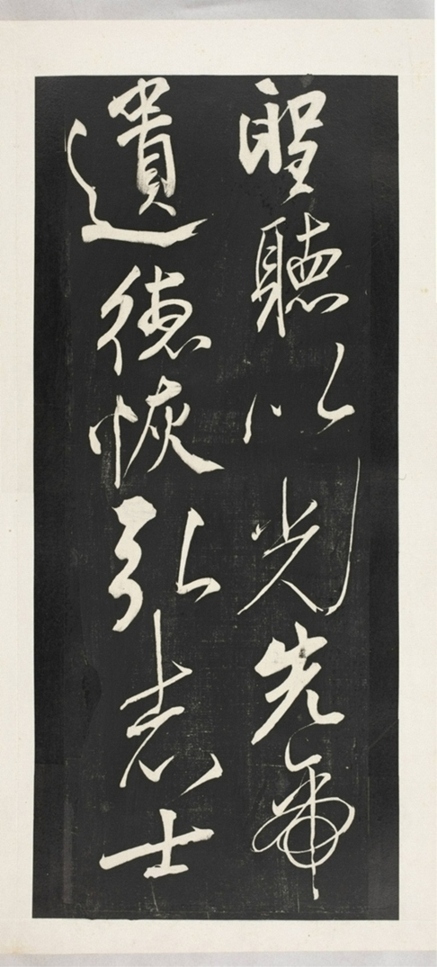 聖聽以光先帝
遺德恢弘志士